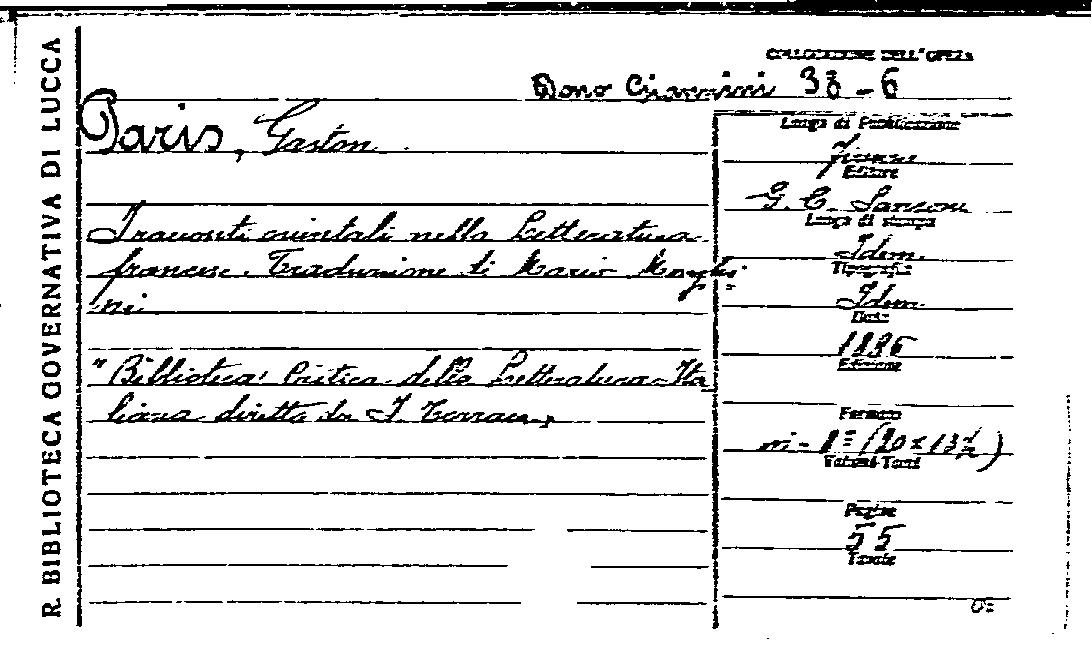 R. BIBLIOTECA GOVERNATIVA DI LUCCA
COLLOCAZIONE DELL'OPERA
Dono Giannini 38 - 6
Paris, Gaston.
I racconti orientali nella letteratura
francese. Traduzione di Mario Menghi-
ni.
"Biblioteca Critica della Letteratura Ita
liana diretta da F. Torraca,
Luogo di Pubblicazione
Firenze
Editore
G. C. Sansoni
Luogo di stampa
Idem.
Tipografia
Idem.
Data
1886
Edizione
Formato
in - 8° (20 x 13½)
Volumi-Tomi
Pagine
55
Tavole